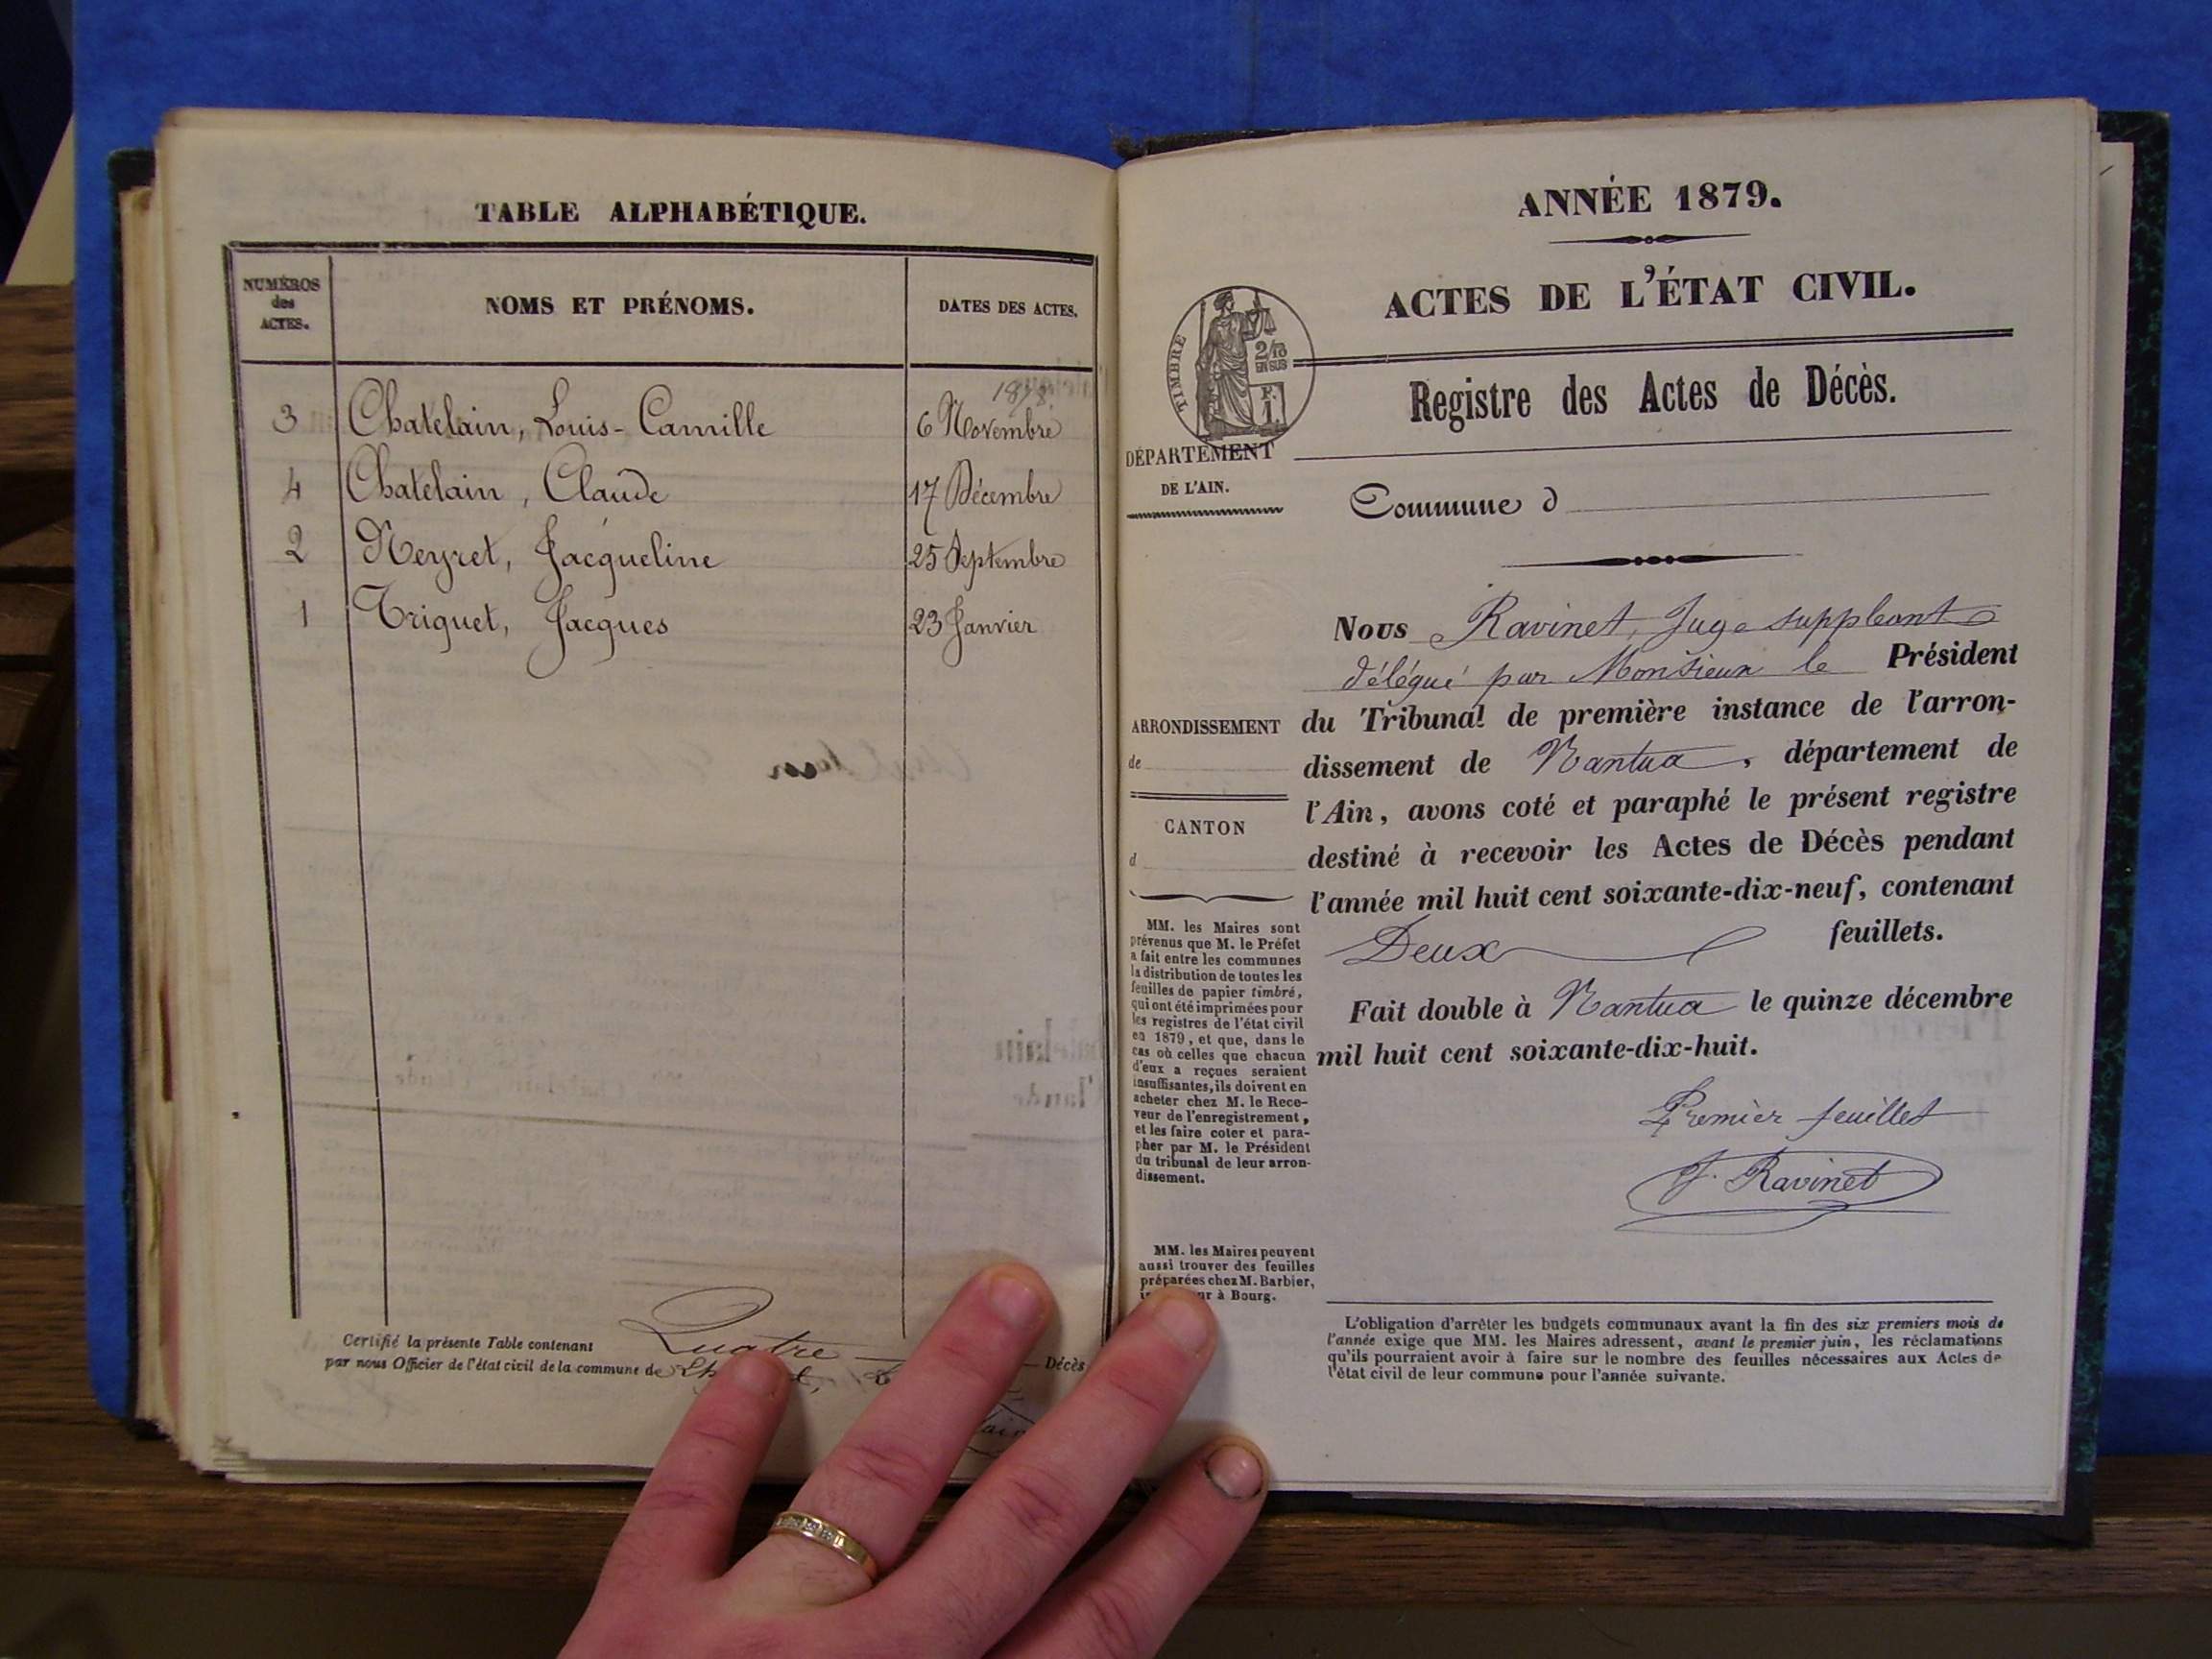 TABLE ALPHABÉTIQUE.
NUMÉROS
des
ACTES.
NOMS ET PRÉNOMS.
DATES DES ACTES.
1878
3 Chatelain, Louis-Camille 6 Novembre
4 Chatelain, Claude 17 Décembre
2 Neyret, Jacqueline 25 Septembre
1 Triquet, Jacques 23 Janvier
Certifié la présente Table contenant Quatre Décès
par nous Officier de l'état civil de la commune de
ANNÉE 1879.
ACTES DE L'ÉTAT CIVIL.
TIMBRE
2/10
EN SUS
F.
1.
Registre des Actes de Décès.
DÉPARTEMENT
DE L'AIN.
Commune d
Nous Ravinet, Juge suppleant
délégué par Monsieur le Président
du Tribunal de première instance de l'arron-
dissement de Nantua, département de
l'Ain, avons coté et paraphé le présent registre
destiné à recevoir les Actes de Décès pendant
l'année mil huit cent soixante-dix-neuf, contenant
Deux feuillets.
Fait double à Nantua le quinze décembre
mil huit cent soixante-dix-huit.
Premier feuillet
J. Ravinet
ARRONDISSEMENT
de
CANTON
d
MM. les Maires sont
prévenus que M. le Préfet
a fait entre les communes
la distribution de toutes les
feuilles de papier timbré,
qui ont été imprimées pour
les registres de l'état civil
en 1879, et que, dans le
cas où celles que chacun
d'eux a reçues seraient
insuffisantes, ils doivent en
acheter chez M. le Rece-
veur de l'enregistrement,
et les faire coter et para-
pher par M. le Président
du tribunal de leur arron-
dissement.
MM. les Maires peuvent
aussi trouver des feuilles
préparées chez M. Barbier,
à Bourg.
L'obligation d'arrêter les budgets communaux avant la fin des six premiers mois de
l'année exige que MM. les Maires adressent, avant le premier juin, les réclamations
qu'ils pourraient avoir à faire sur le nombre des feuilles nécessaires aux Actes de
l'état civil de leur commune pour l'année suivante.